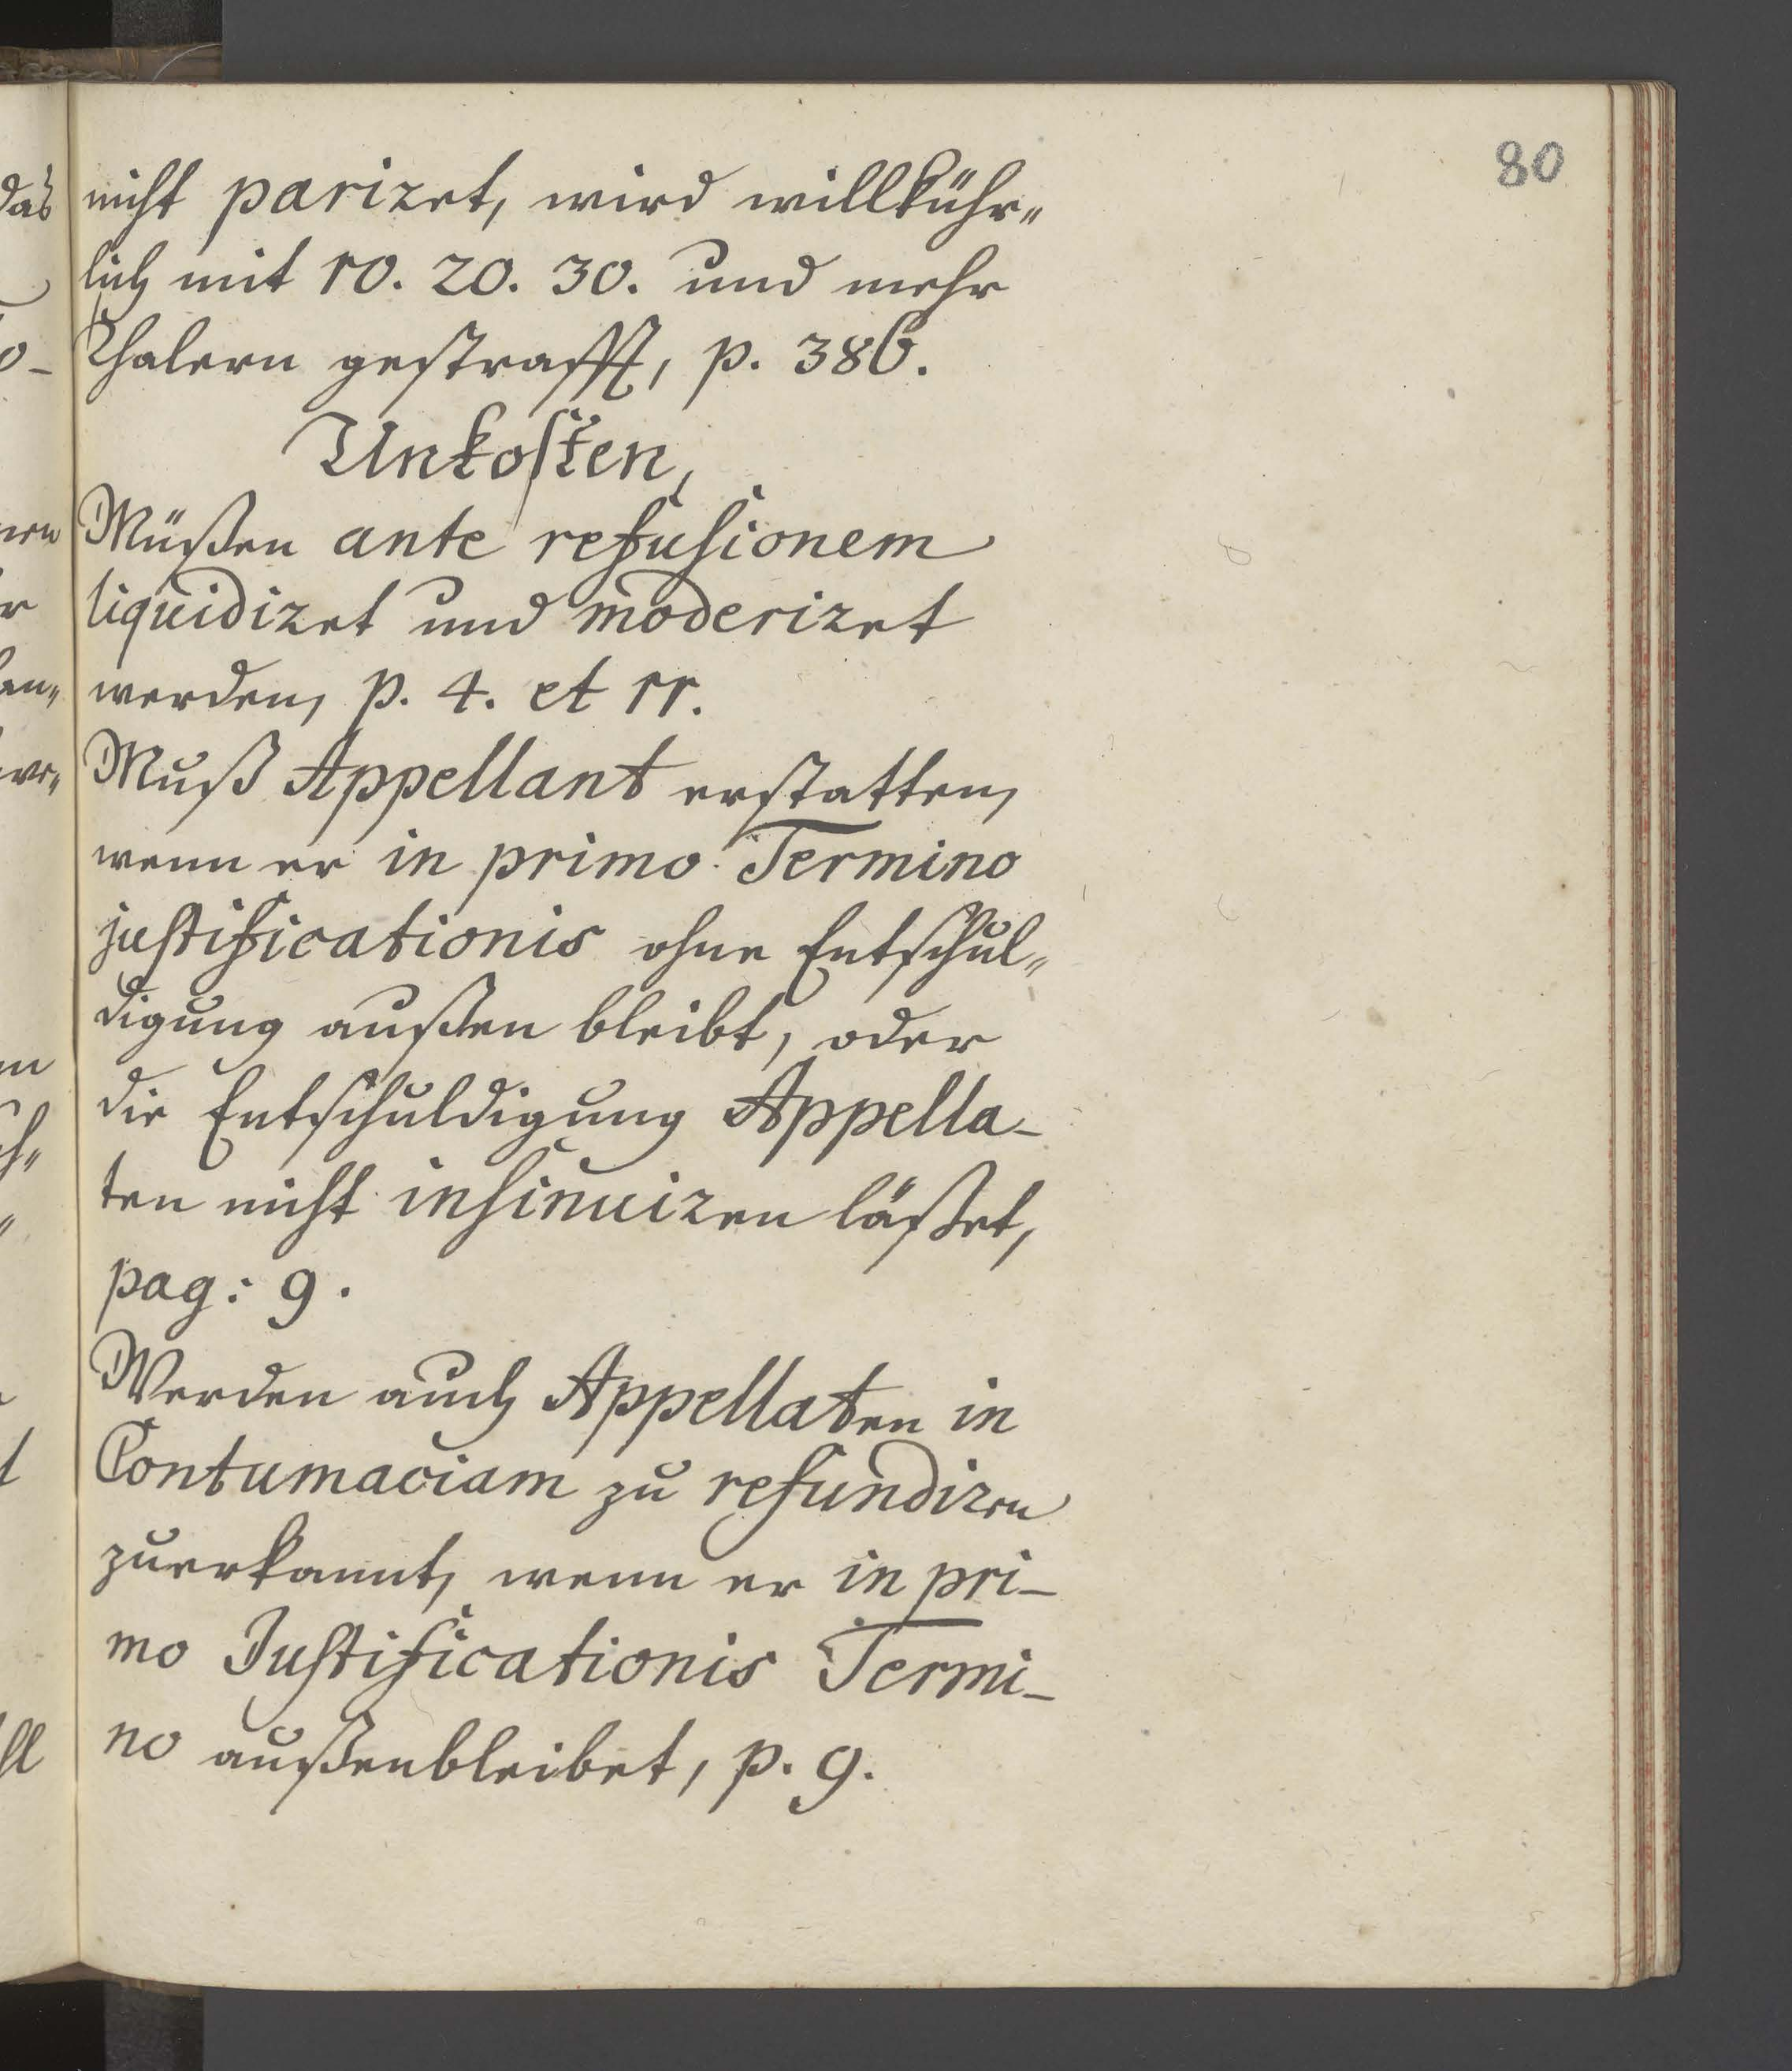 80
nicht pariret, wird willkühr„
lich mit 10. 20. 30. und mehr
Thalern gestrafft, p. 386.
Unkosten,
Müßen ante refusionem
liquidiret und moderiret
werden, p. 4. et 11.
Muß Appellant erstatten,
wenn er in primo Termino
justificationis ohne Entschul„
digung außen bleibt, oder
die Entschuldigung Appella-
ten nicht insinuiren läßet,
pag: 9.
Werden auch Appellaten in
Contumaciam zu refundiren
zuerkannt, wenn er in pri-
mo Justificationis Termi-
no außenbleibet, p. 9.